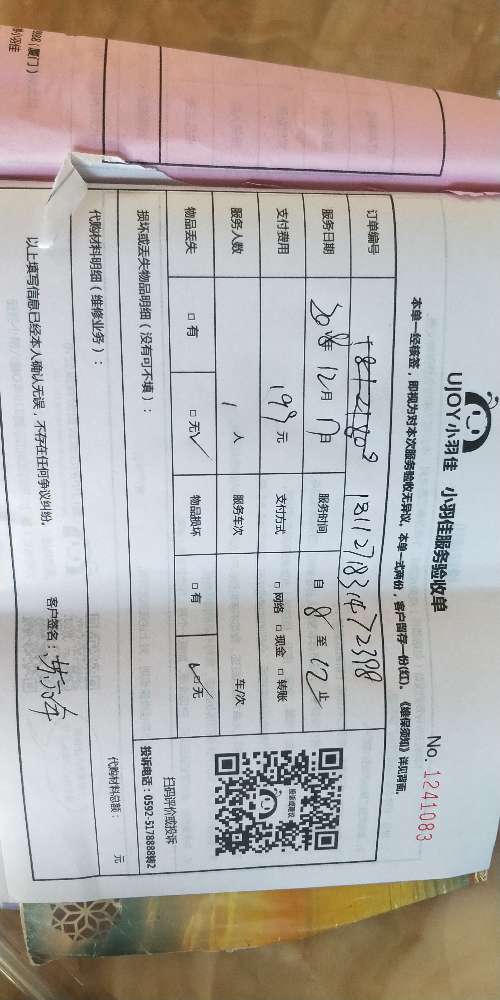 UJOY小羽佳
小羽佳服务验收单
No. 1241083
本单一经核签，即视为对本次服务验收无异议。本单一式两份，客户留存一份(红)。《维保须知》详见背面。
订单编号 181127183147 2398
服务日期 2018年 12月 日 服务时间 自 8 至 12 止
支付费用 199 元 支付方式 □网络 □现金 □转账
服务人数 1 人 服务车次 车/次
物品丢失 □有 □无√ 物品损坏 □有 □无
损坏或丢失物品明细（没有可不填）：
扫码评价或投诉
投诉电话：0592-5178888转2
代购材料明细（维修业务）：
代购材料总额： 元
以上填写信息已经本人确认无误，不存在任何争议纠纷。
客户签名：